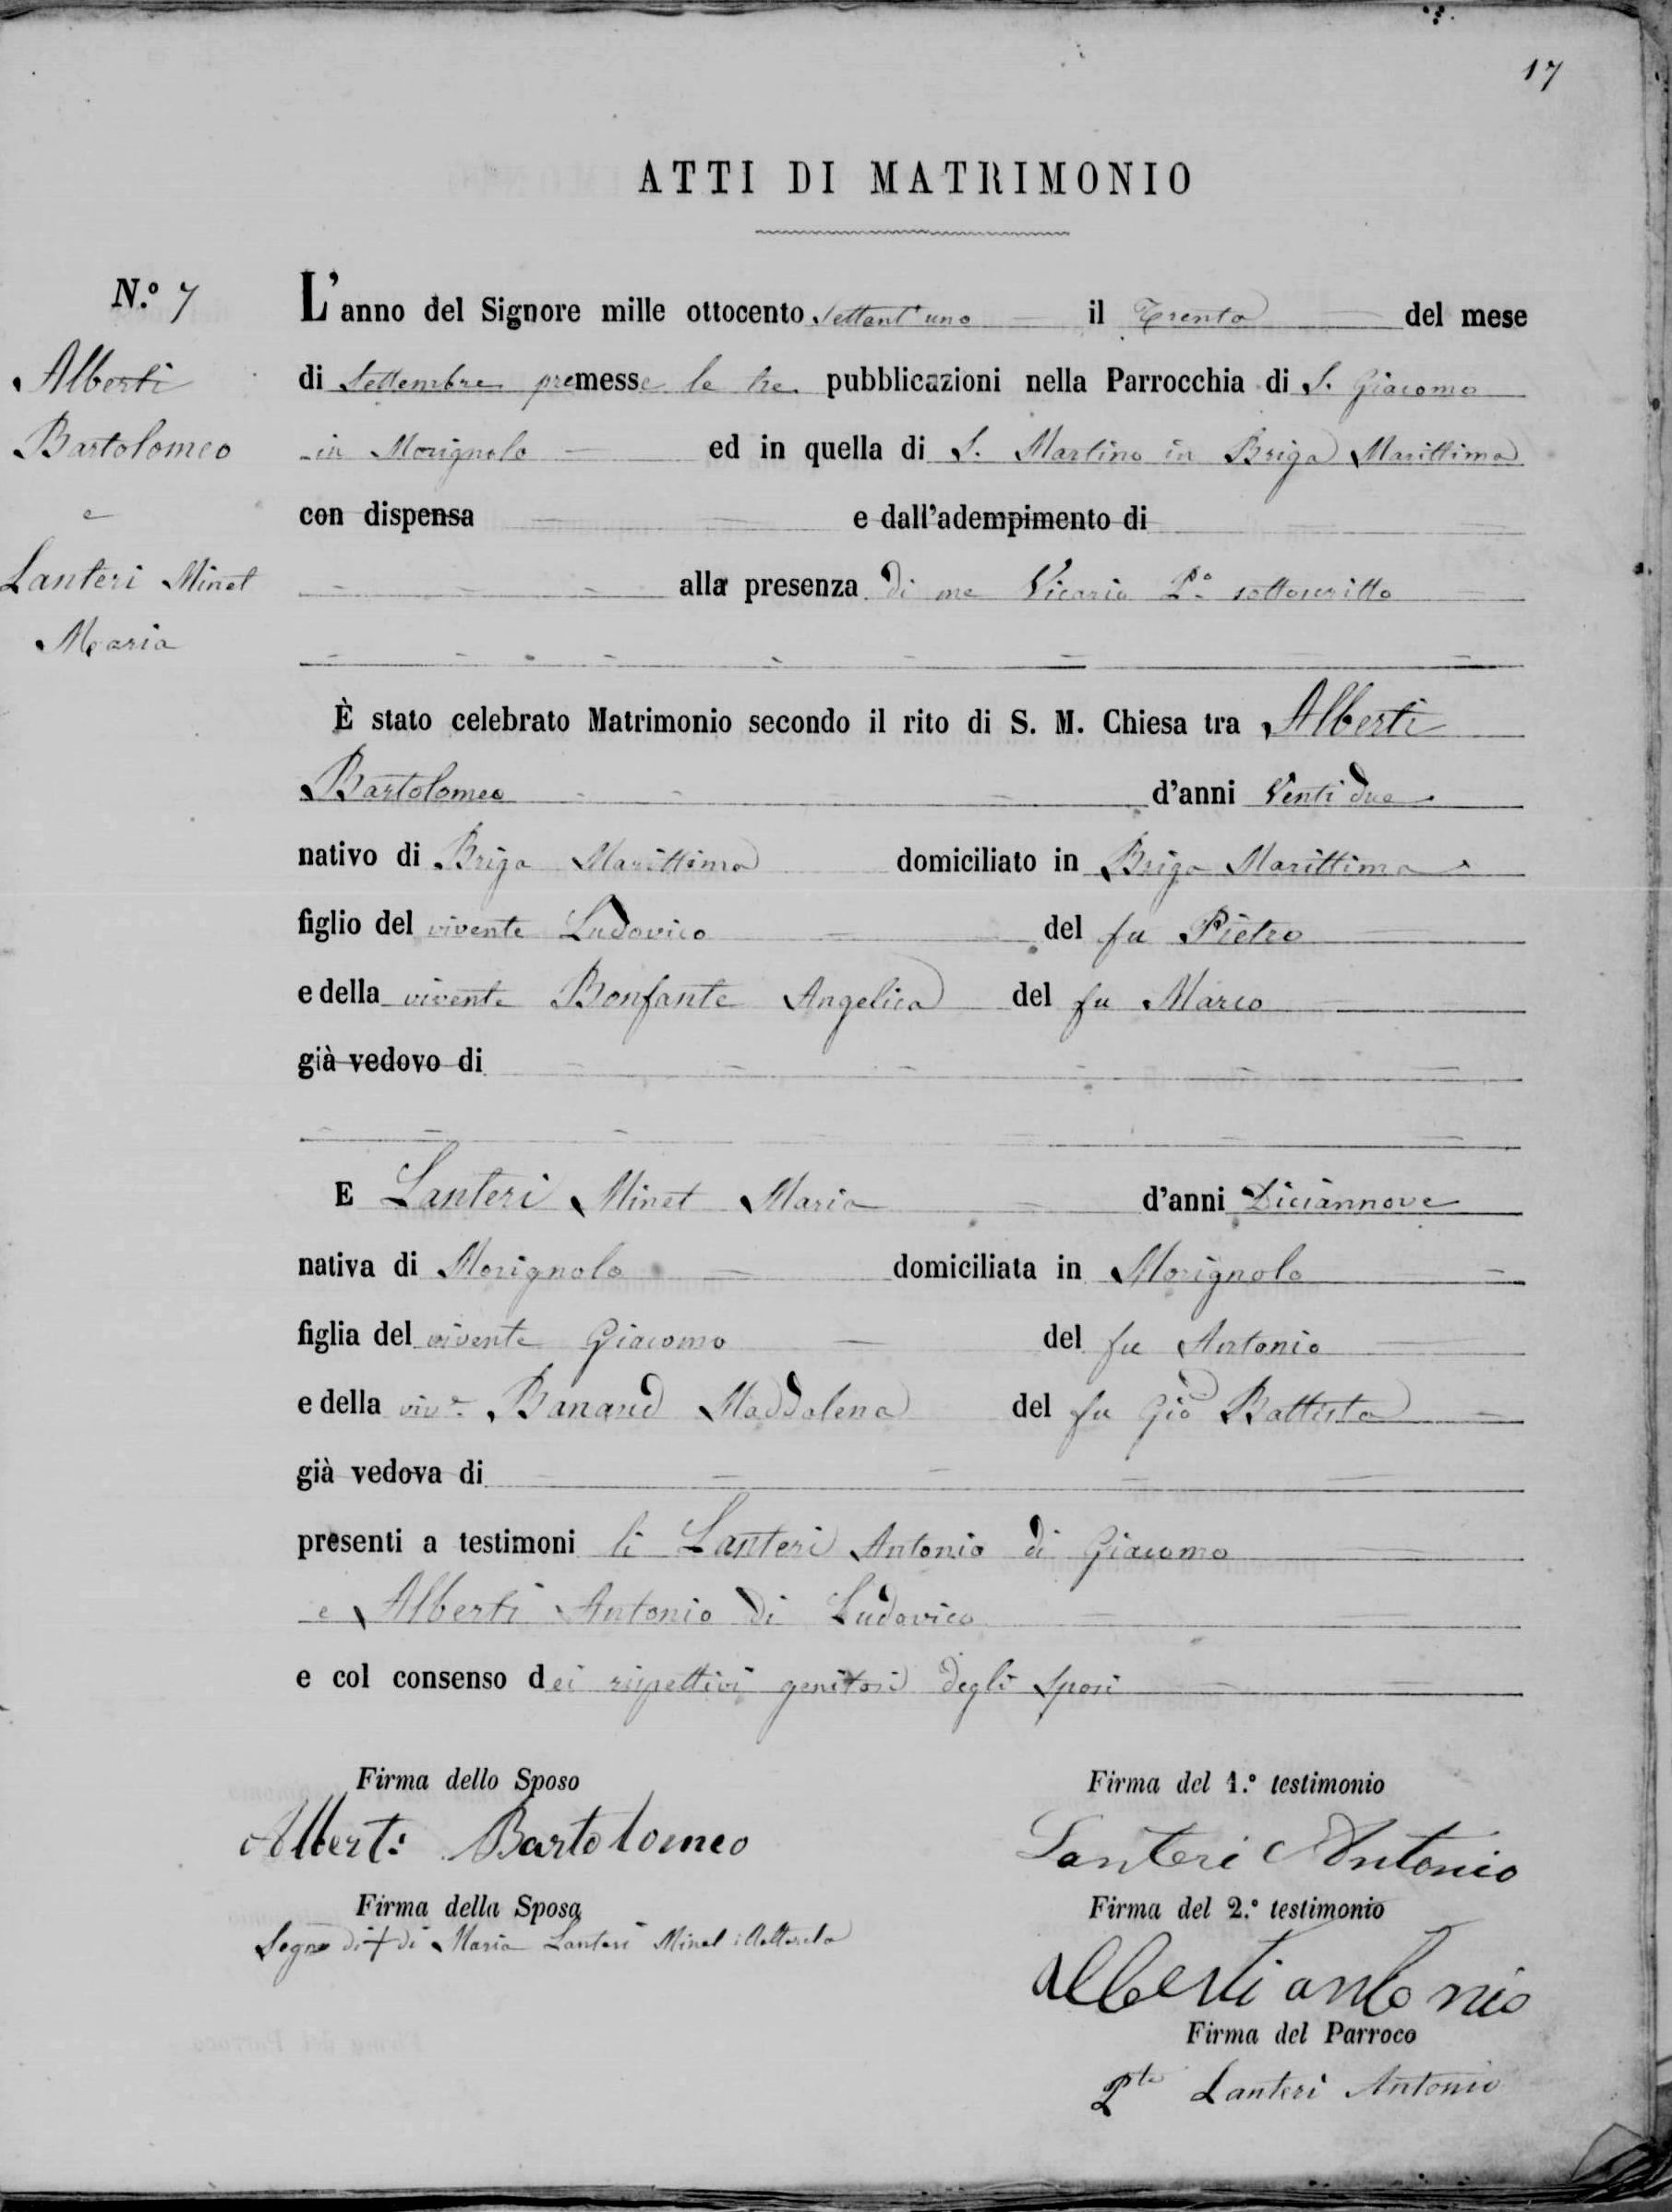 17
ATTI DI MATRIMONIO
N.º 7
Alberti
Bartolomeo
e
Lanteri Minet
Maria
L'anno del Signore mille ottocento Settant'uno il Trenta del mese
di Settembre premesse le tre pubblicazioni nella Parrocchia di S. Giacomo
in Morignolo ed in quella di S. Martino in Briga Marittima
con dispensa e dall'adempimento di
alla presenza di me Vicario P.º sottoscritto
È stato celebrato Matrimonio secondo il rito di S. M. Chiesa tra Alberti
Bartolomeo d'anni Venti due
nativo di Briga Marittima domiciliato in Briga Marittima
figlio del vivente Ludovico del fu Pietro
e della vivente Bonfante Angelica del fu Marco
già vedovo di
E Lanteri Minet Maria d'anni Diciannove
nativa di Morignolo domiciliata in Morignolo
figlia del vivente Giacomo del fu Antonio
e della viv.e Banaud Maddalena del fu Gio Battista
già vedova di
presenti a testimoni li Lanteri Antonio di Giacomo
e Alberti Antonio di Ludovico
e col consenso dei rispettivi genitori degli sposi
Firma dello Sposo
Alberti Bartolomeo
Firma della Sposa
Segno di + di Maria Lanteri Minet illetterata
Firma del 1.º testimonio
Lanteri Antonio
Firma del 2.º testimonio
alberti antonio
Firma del Parroco
P.te Lanteri Antonio